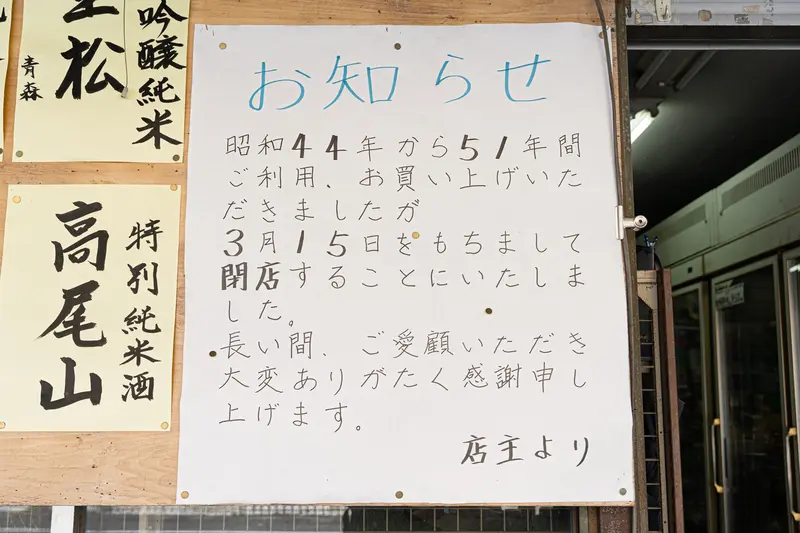 お知らせ
昭和44年から51年間
ご利用、お買い上げいた
だきましたが
3月15日をもちまして
閉店することにいたしま
した。
長い間、ご愛顧いただき
大変ありがたく感謝申し
上げます。
店主より
吟醸純米
松
青森
特別純米酒
高尾山